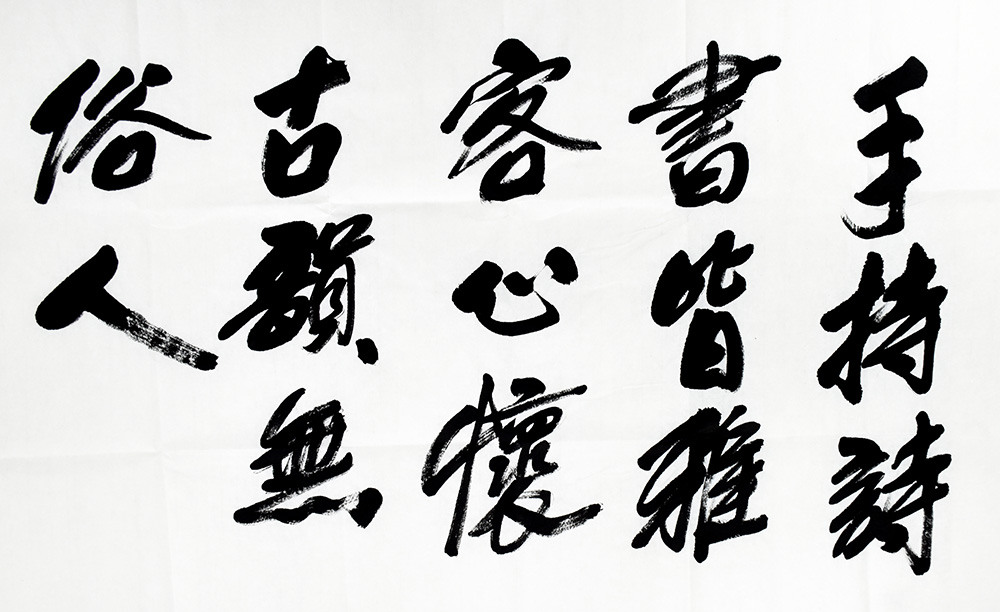 手持詩
書皆雅
客心懷
古韻無
俗人